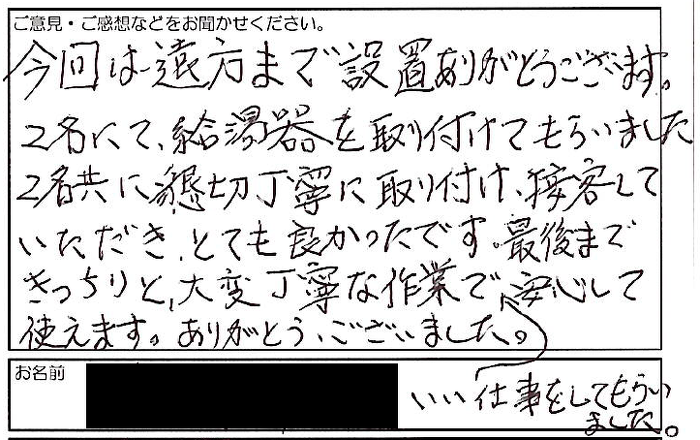 ご意見・ご感想などをお聞かせください。
今回は遠方まで設置ありがとうございます。
2名にて、給湯器を取り付けてもらいました
2名共に懇切丁寧に取り付け、接客して
いただき、とても良かったです。最後まで
きっちりと、大変丁寧な作業で、安心して
使えます。ありがとうございました。
お名前
いい仕事をしてもらい
ました。